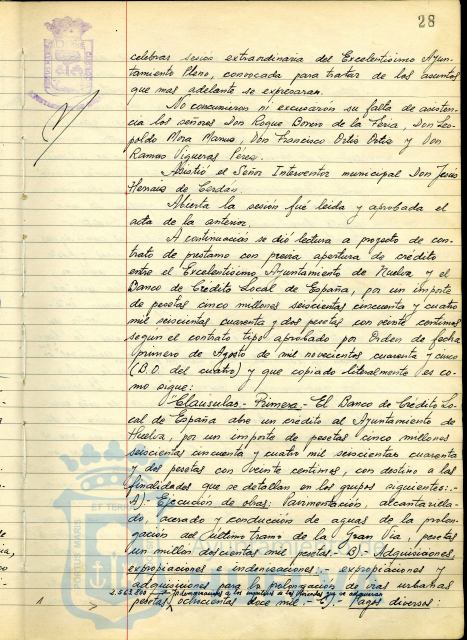 28
celebrar sesión extraordinaria del Excelentísimo Ayun-
tamiento Pleno, convocada para tratar de los asuntos
que mas adelante se expresaran.
No concurrieron ni excusaron su falta de asisten-
cia los señores Don Roque Bonero de la Feria, Don Leo-
poldo Mora Manus, Don Francisco Ortiz Ortiz y Don
Ramon Vigueras Pérez.
Asistió el Señor Interventor municipal Don Jesús
Herraiz de Cerdan.
Abierta la sesión fué leida y aprobada el
acta de la anterior.
A continuación se dió lectura a proyecto de con-
trato de prestamo con previa apertura de crédito
entre el Excelentísimo Ayuntamiento de Huelva y el
Banco de Crédito Local de España, por un importe
de pesetas cinco millones seiscientos cincuenta y cuatro
mil seiscientos cuarenta y dos pesetas con veinte centimos
segun el contrato tipo aprobado por Orden de fecha
primero de Agosto de mil novecientos cuarenta y cinco
(B.O. del cuatro) y que copiado literalmente es co-
mo sigue:
"Clausulas.- Primera.- El Banco de Crédito Lo-
cal de España abre un crédito al Ayuntamiento de
Huelva, por un importe de pesetas cinco millones
seiscientos cincuenta y cuatro mil seiscientas cuarenta
y dos pesetas con veinte centimos, con destino a las
finalidades que se detallan en los grupos siguientes:-
A).- Ejecución de obras: Pavimentación, alcantarilla-
do, acerado y conducción de aguas de la prolon-
gación del ultimo tramo de la Gran Via, pesetas
un millon doscientas mil pesetas.- B).- Adquisiciones,
expropiaciones e indemnizaciones.- expropiaciones y
adquisiciones para la prolongación de vias urbanas
2.562.800 - Indemnizaciones a los inquilinos de las viviendas que se adquieran
pesetas ochocientas doce mil.- C).- Pagos diversos:
PORTUS MARIS
ET TERR